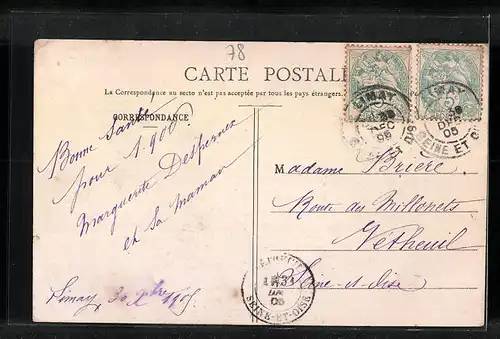 78
CARTE POSTALE
La Correspondance au recto n'est pas acceptée par tous les pays étrangers.
CORRESPONDANCE
Bonne Santé
pour 1906
Marguerite
et sa maman
Limay, 30 Xbre 1905
LIMAY
DEC
05
SEINE ET O
LIMAY
05
SEINE ET O
Madame Brière
Route des Millonets
Vetheuil
Seine-et-Oise
31
05
SEINE-ET-OISE